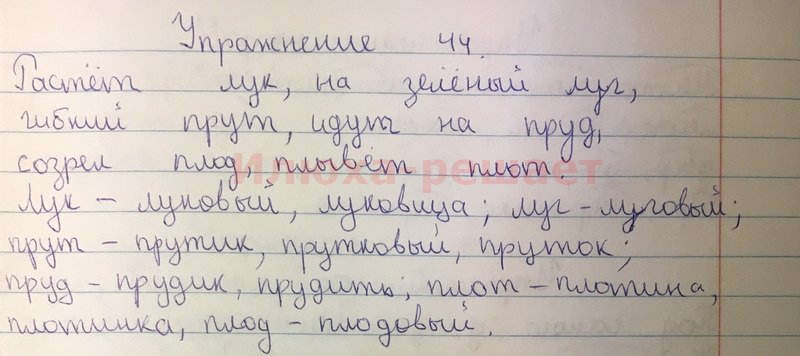 Упражнение 44.
Растёт лук, на зелёный луг,
гибкий прут, идут на пруд,
созрел плод, плывёт плот
Илюха-решает
Лук – луковый, луковица; луг – луговый;
прут – прутик, прутковый, пруток;
пруд – прудик, прудить; плот – плотина,
плотинка, плод – плодовый.